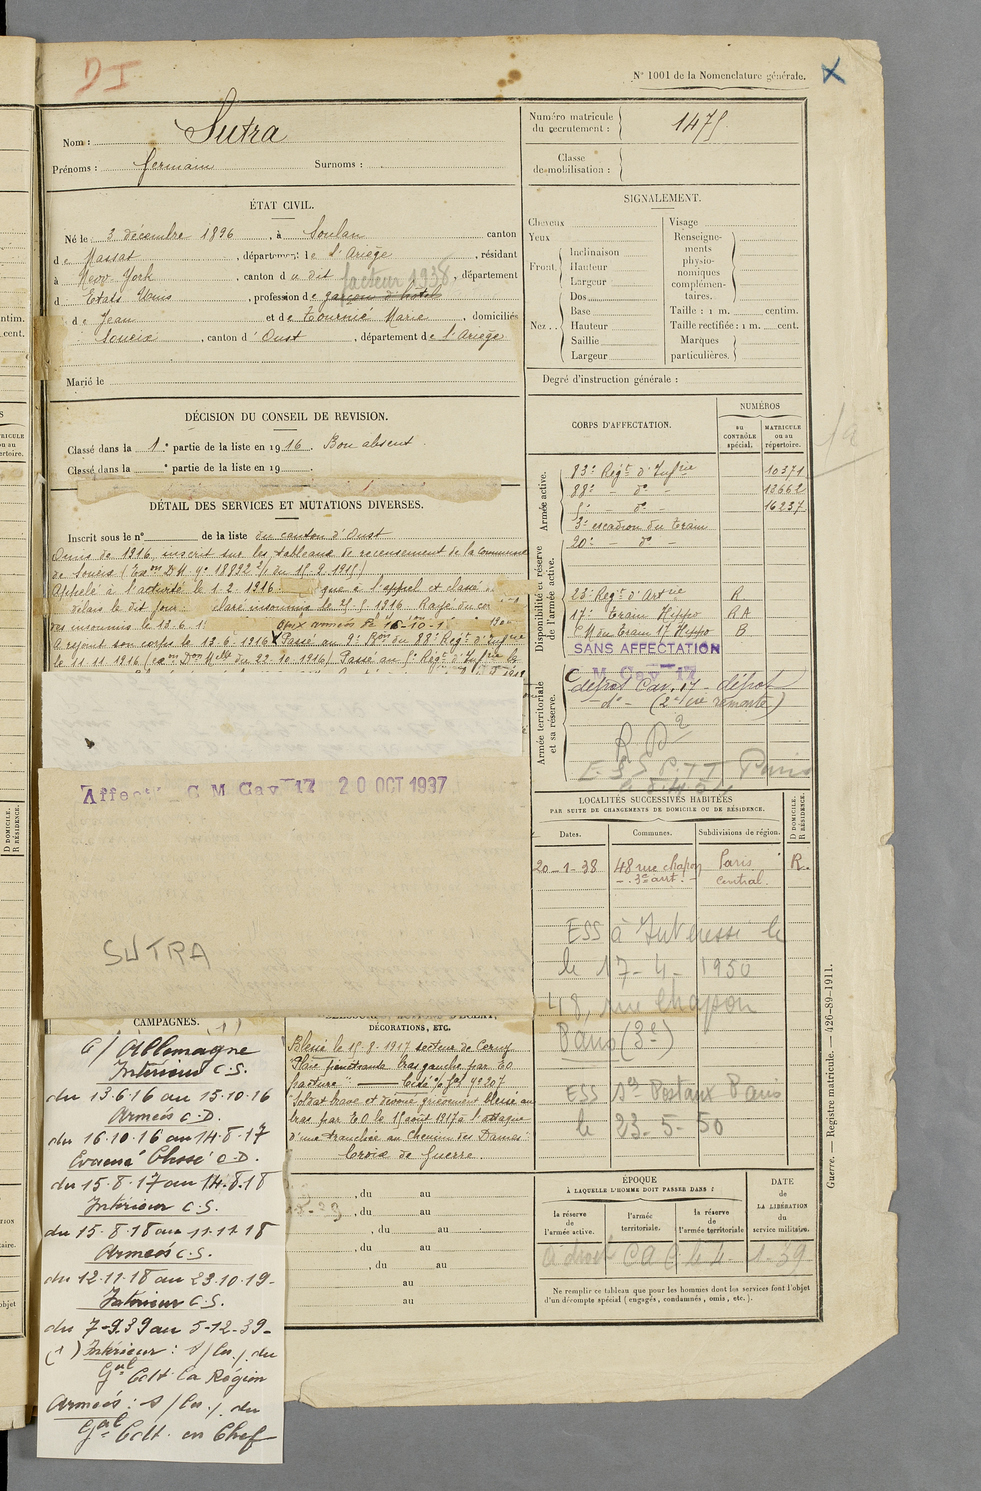 D I
N° 1001 de la Nomenclature générale.
X
Nom : Sutra
Prénoms : Germain Surnoms :
Numéro matricule du recrutement : 1475
Classe de mobilisation :
ÉTAT CIVIL.
Né le 3 décembre 1896, à Soulan canton
de Massat, département de l'Ariège, résidant
à New York, canton du dit, département
facteur 1938
d Etats Unis, profession de garçon d'hôtel
de Jean et de Tournié Marie, domiciliés
Soueix, canton d'Oust, département de l'Ariège
Marié le
SIGNALEMENT.
Cheveux
Yeux
Front.
Inclinaison
Hauteur
Largeur
Nez..
Dos
Base
Hauteur
Saillie
Largeur
Visage
Renseigne-
ments
physio-
nomiques
complémen-
taires.
Taille : 1 m. centim.
Taille rectifiée : 1 m. cent.
Marques
particulières.
Degré d'instruction générale :
DÉCISION DU CONSEIL DE REVISION.
Classé dans la 1e partie de la liste en 1916. Bon absent.
Classé dans la e partie de la liste en 19 .
DÉTAIL DES SERVICES ET MUTATIONS DIVERSES.
Inscrit sous le n° de la liste du canton d'Oust
Omis de 1916, inscrit sur les tableaux de recensement de la commune
de Soueix
Appelé à l'activité le 1 2.1916 à l'appel et classé
délais le dit jour. insoumis le 1916 Rayé du
des insoumis le 13.6.1
A rejoint son corps le 13.6.1916 Passé au 9e Bon du 88e Régt d'Infrie
le 11 11 1916 du 22 10 1916) Passé au Régt d'Infrie le
CORPS D'AFFECTATION.
NUMÉROS
au CONTRÔLE spécial.
MATRICULE ou au répertoire.
Armée active.
83e Régt d'Infrie 10371
88e - do - 13662
- do - 16237
3e escadron du Train
20e - do -
Disponibilité et réserve de l'armée active.
23e Régt d'Artie R
17e Train Hippo RA
du Train 17 Hippo B
SANS AFFECTATION
C M Cav 17
Armée territoriale et sa réserve.
dépôt Cav. 17 - dépôt
- do - remonte)
Paris
Affecté C M Cav 17 20 OCT 1937
SUTRA
LOCALITÉS SUCCESSIVES HABITÉES
PAR SUITE DE CHANGEMENTS DE DOMICILE OU DE RÉSIDENCE.
Dates.
Communes.
Subdivisions de région.
D DOMICILE. R RÉSIDENCE.
20-1-38 48 rue Chapon Paris R.
- 3e arrt. - Central.
ESS à le
le 17-4-1950
48, rue Chapon
Paris (3e)
ESS Postaux Paris
le 23-5-50
CAMPAGNES.
(1)
C/ Allemagne
Intérieur C.S.
du 13.6.16 au 15.10.16
Armées C.D.
du 16.10.16 au 14.8.17
Evacué blessé C.D.
du 15.8.17 au 14.8.18
Intérieur C.S.
du 15.8.18 au 11.11.18
Armées C.S.
du 12.11.18 au 23.10.19-
Intérieur C.S.
du 7-9.39 au 5-12-39-
(1) Intérieur : s/les/ du
Gal Cdt la Région
Armées : s/les/ du
Gal Cdt. en Chef
DÉCORATIONS, ETC.
Blessé le 15.8.1917 secteur de Cerny
Plaie pénétrante bras gauche par EO
fracture" — Cité
"Soldat brave et dévoué grièvement blessé au
bras par EO le 15 août 1917 à l'attaque
d'une tranchée au Chemin des Dames"
Croix de Guerre.
, du au
, du au
, du au
, du au
, du au
au
au
ÉPOQUE
À LAQUELLE L'HOMME DOIT PASSER DANS :
la réserve de l'armée active.
l'armée territoriale.
la réserve de l'armée territoriale
DATE de LA LIBÉRATION du service militaire.
Ne remplir ce tableau que pour les hommes dont les services font l'objet
d'un décompte spécial (engagés, condamnés, omis, etc.).
Guerre. — Registre matricule. — 426-89-1911.